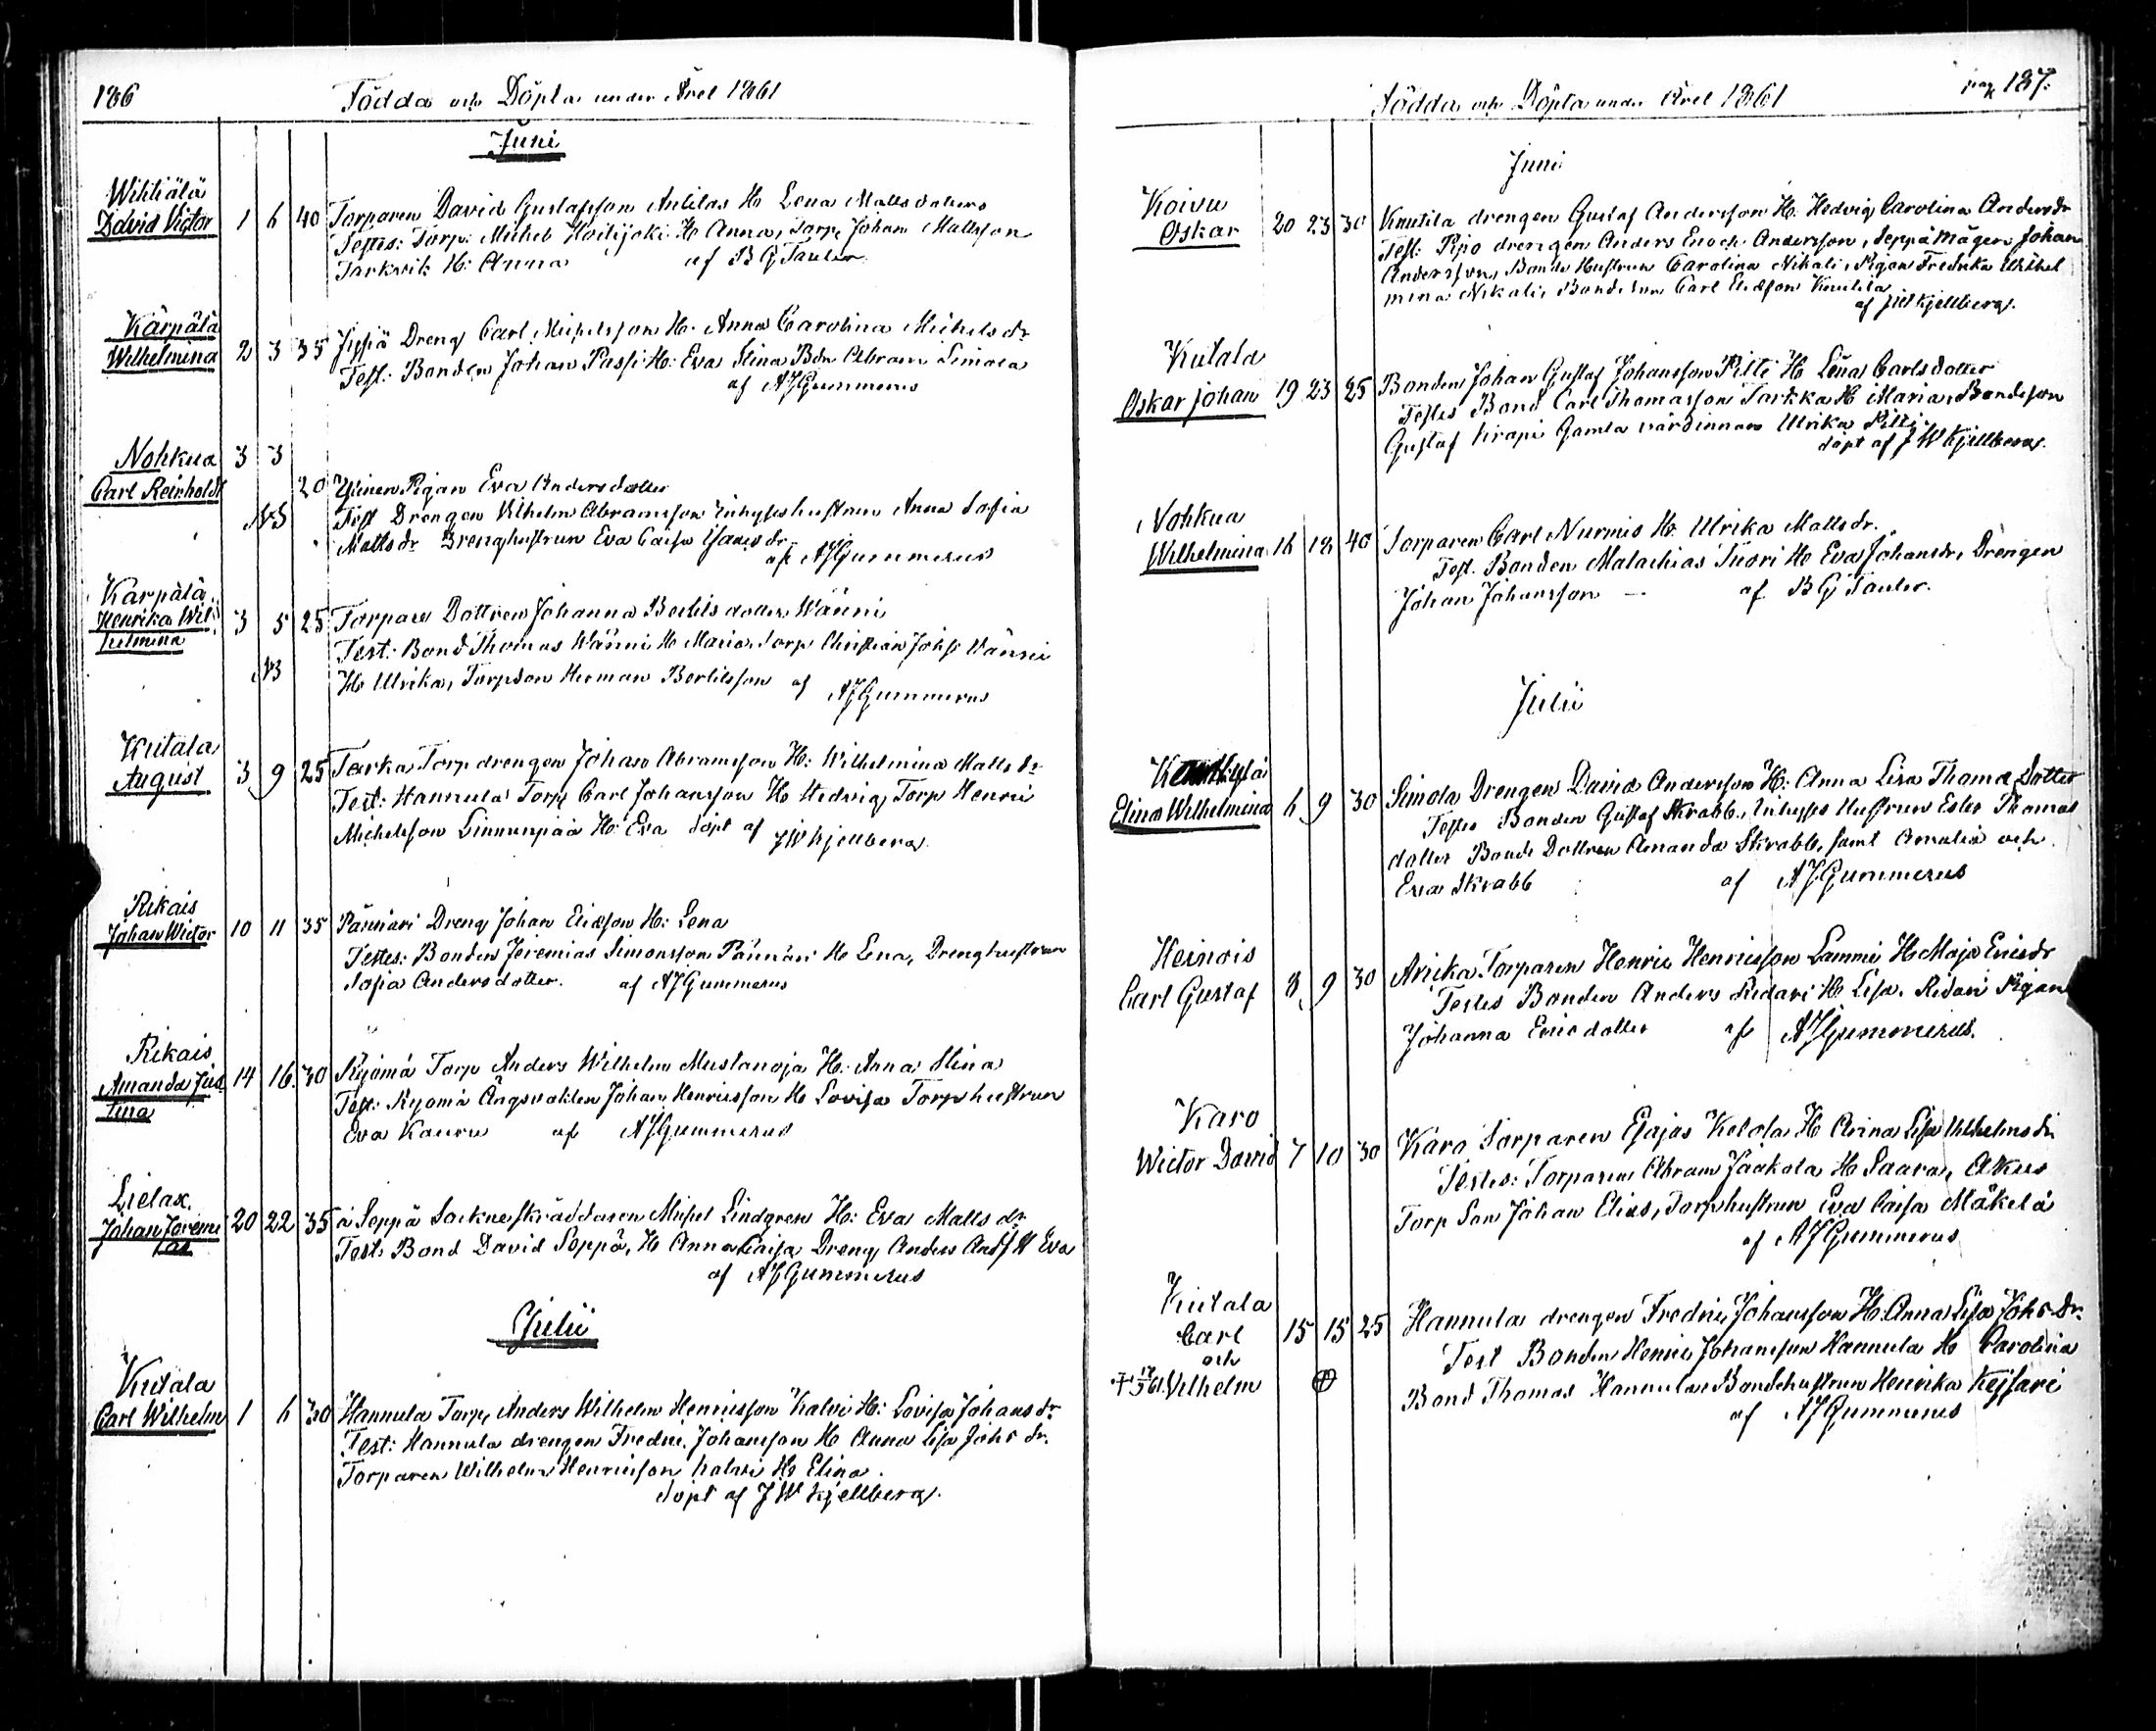 186
Födda och Döpta under Året 1861
Juni
Wihtiälä
David Victor 1 6 40 Torparen David Gustafsson Anttilas H. Lena Mattsdotter
Testes: Torp: Michel H. Anna, Torp. Johan Mattsson
H: Anna af B G Tauler
Kärpälä
Wilhelmina 2 3 35 Dreng Carl Michelsson H. Anna Carolina Michelsdr
Test: Bonden Johan Passi H: Eva Stina Bdn Abram Simola
af AJGummerus
Nohkua 3 3
Carl Reinholdt 20 Pigan Eva Andersdotter
NB Test Drengen Vilhelm Abramsson Inhyses hustrun Anna Sofia
Mattsdr Drenghustrun Eva Caisa Isaacsdr
af AJGummerus
Kärpälä
Henrika Wil-
helmina 3 5 25 Torpare Dottren Johanna Bertilsdotter Wänni
Test: Bond Thomas Wänni H Maria, Torp Christian Wänni
NB H Ulrika, Torpson Herman Bertilsson af AJGummerus
Kutala
August 3 9 25 Tarka Torp drengen Johan Abramsson H: Wilhelmina Mattsdr
Test: Hannula Torp Carl Johansson H Hedvig, Torp Henric
Michelsson Linnunpää H: Eva döpt af JWKjellberg.
Rikais
Johan Wictor 10 11 35 Dreng Johan Ericsson H: Lena
Testes: Bonden Jeremias Simonsson H Lena, Drenghustrun
Sofia Andersdotter. af AJGummerus
Rikais
Amanda Jus
tina 14 16 30 Kyömä Torp Anders Wilhelm Mustanoja H: Anna Stina
Test: Kyömä Johan Henricsson H Lovisa Torphustrun
Eva Kauru af AJGummerus
Lielax
Johan Jeremi
as 20 22 35 å Seppä Sockneskräddaren Michel Lindgren H: Eva Mattsdr
Test: Bond David Seppä, H Anna Caisa Dreng Anders Andss H Eva
af AJGummerus
Julii
Kutala
Carl Wilhelm 1 6 30 Hannula Torp. Anders Wilhelm Henricsson Kalvi H: Lovisa Johansdr
Test: Hannula drengen Fredric Johansson H Anna Lisa Johsdr.
Torparen Wilhelm Henricsson Kalvi H Elina.
döpt af J W Kjellberg.
pag 187.
Födda och Döpta under Året 1861
Juni
Koivu
Oskar 20 23 30 Knutila drengen Gustaf Andersson H. Hedvig Carolina Andersdr
Test: Pipo drengen Anders Enoch Andersson, Seppä Mågen Johan
Andersson, Bonde Hustrun Carolina Nikali, Pigan Fredrika Wilhel
mina Nikali, Bondeson Carl Ericsson Knutila
af JWKjellberg.
Kutala
Oskar Johan 19 23 25 Bonden Johan Gustaf Johansson Pitti H Lena Carlsdotter
Testes Bond Carl Thomasson Tarkka H Maria, Bondeson
Gustaf Krapi Gamla värdinnan Ulrika Pitti
döpt af J W Kjellberg.
Nohkua
Wilhelmina 16 18 40 Torparen Carl Nurmis H. Ulrika Mattsdr.
Test. Bonden Malachias Tuori H Eva Johansdr, Drengen
Johan Johansson — af B G Tauler.
Julii
Elina Wilhelmina 6 9 30 Simola Drengen David Andersson H: Anna Lisa Thomædotter
Testes Bonden Gustaf Skrabb, Inhyses Hustrun Ester Thomas
dotter Bonde Dottren Amanda Skrabb, samt Amalia och
Eva Skrabb af AJGummerus
Heinois
Carl Gustaf 8 9 30 Arikka Torparen Henric Henricsson Lammi H Maja Ericsdr
Testes Bonden Anders Ridari H Lisa. Ridari Pigan
Johanna Ericsdotter af AJGummerus.
Karo
Wictor David 7 10 30 Karo Torparen Esajas Ketola H Anna Lisa Vilhelmsdr
Testes: Torparen Abram Jaakola H Saara, Akus
Torp Son Johan Elias, Torphustrun Eva Caisa Mäkelä
af AJGummerus
Kutala
Carl 15 15 25 Hannula drengen Fredric Johansson H. Anna Lisa Johsdr.
och Test Bonden Henric Johansson Hannula H Carolina
Vilhelm Bond Thomas Hannula Bondehustrun Henrika Keisari
af AJGummerus